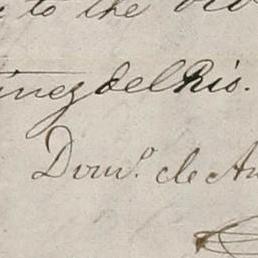 to the
inez del Rio.
Domº. de